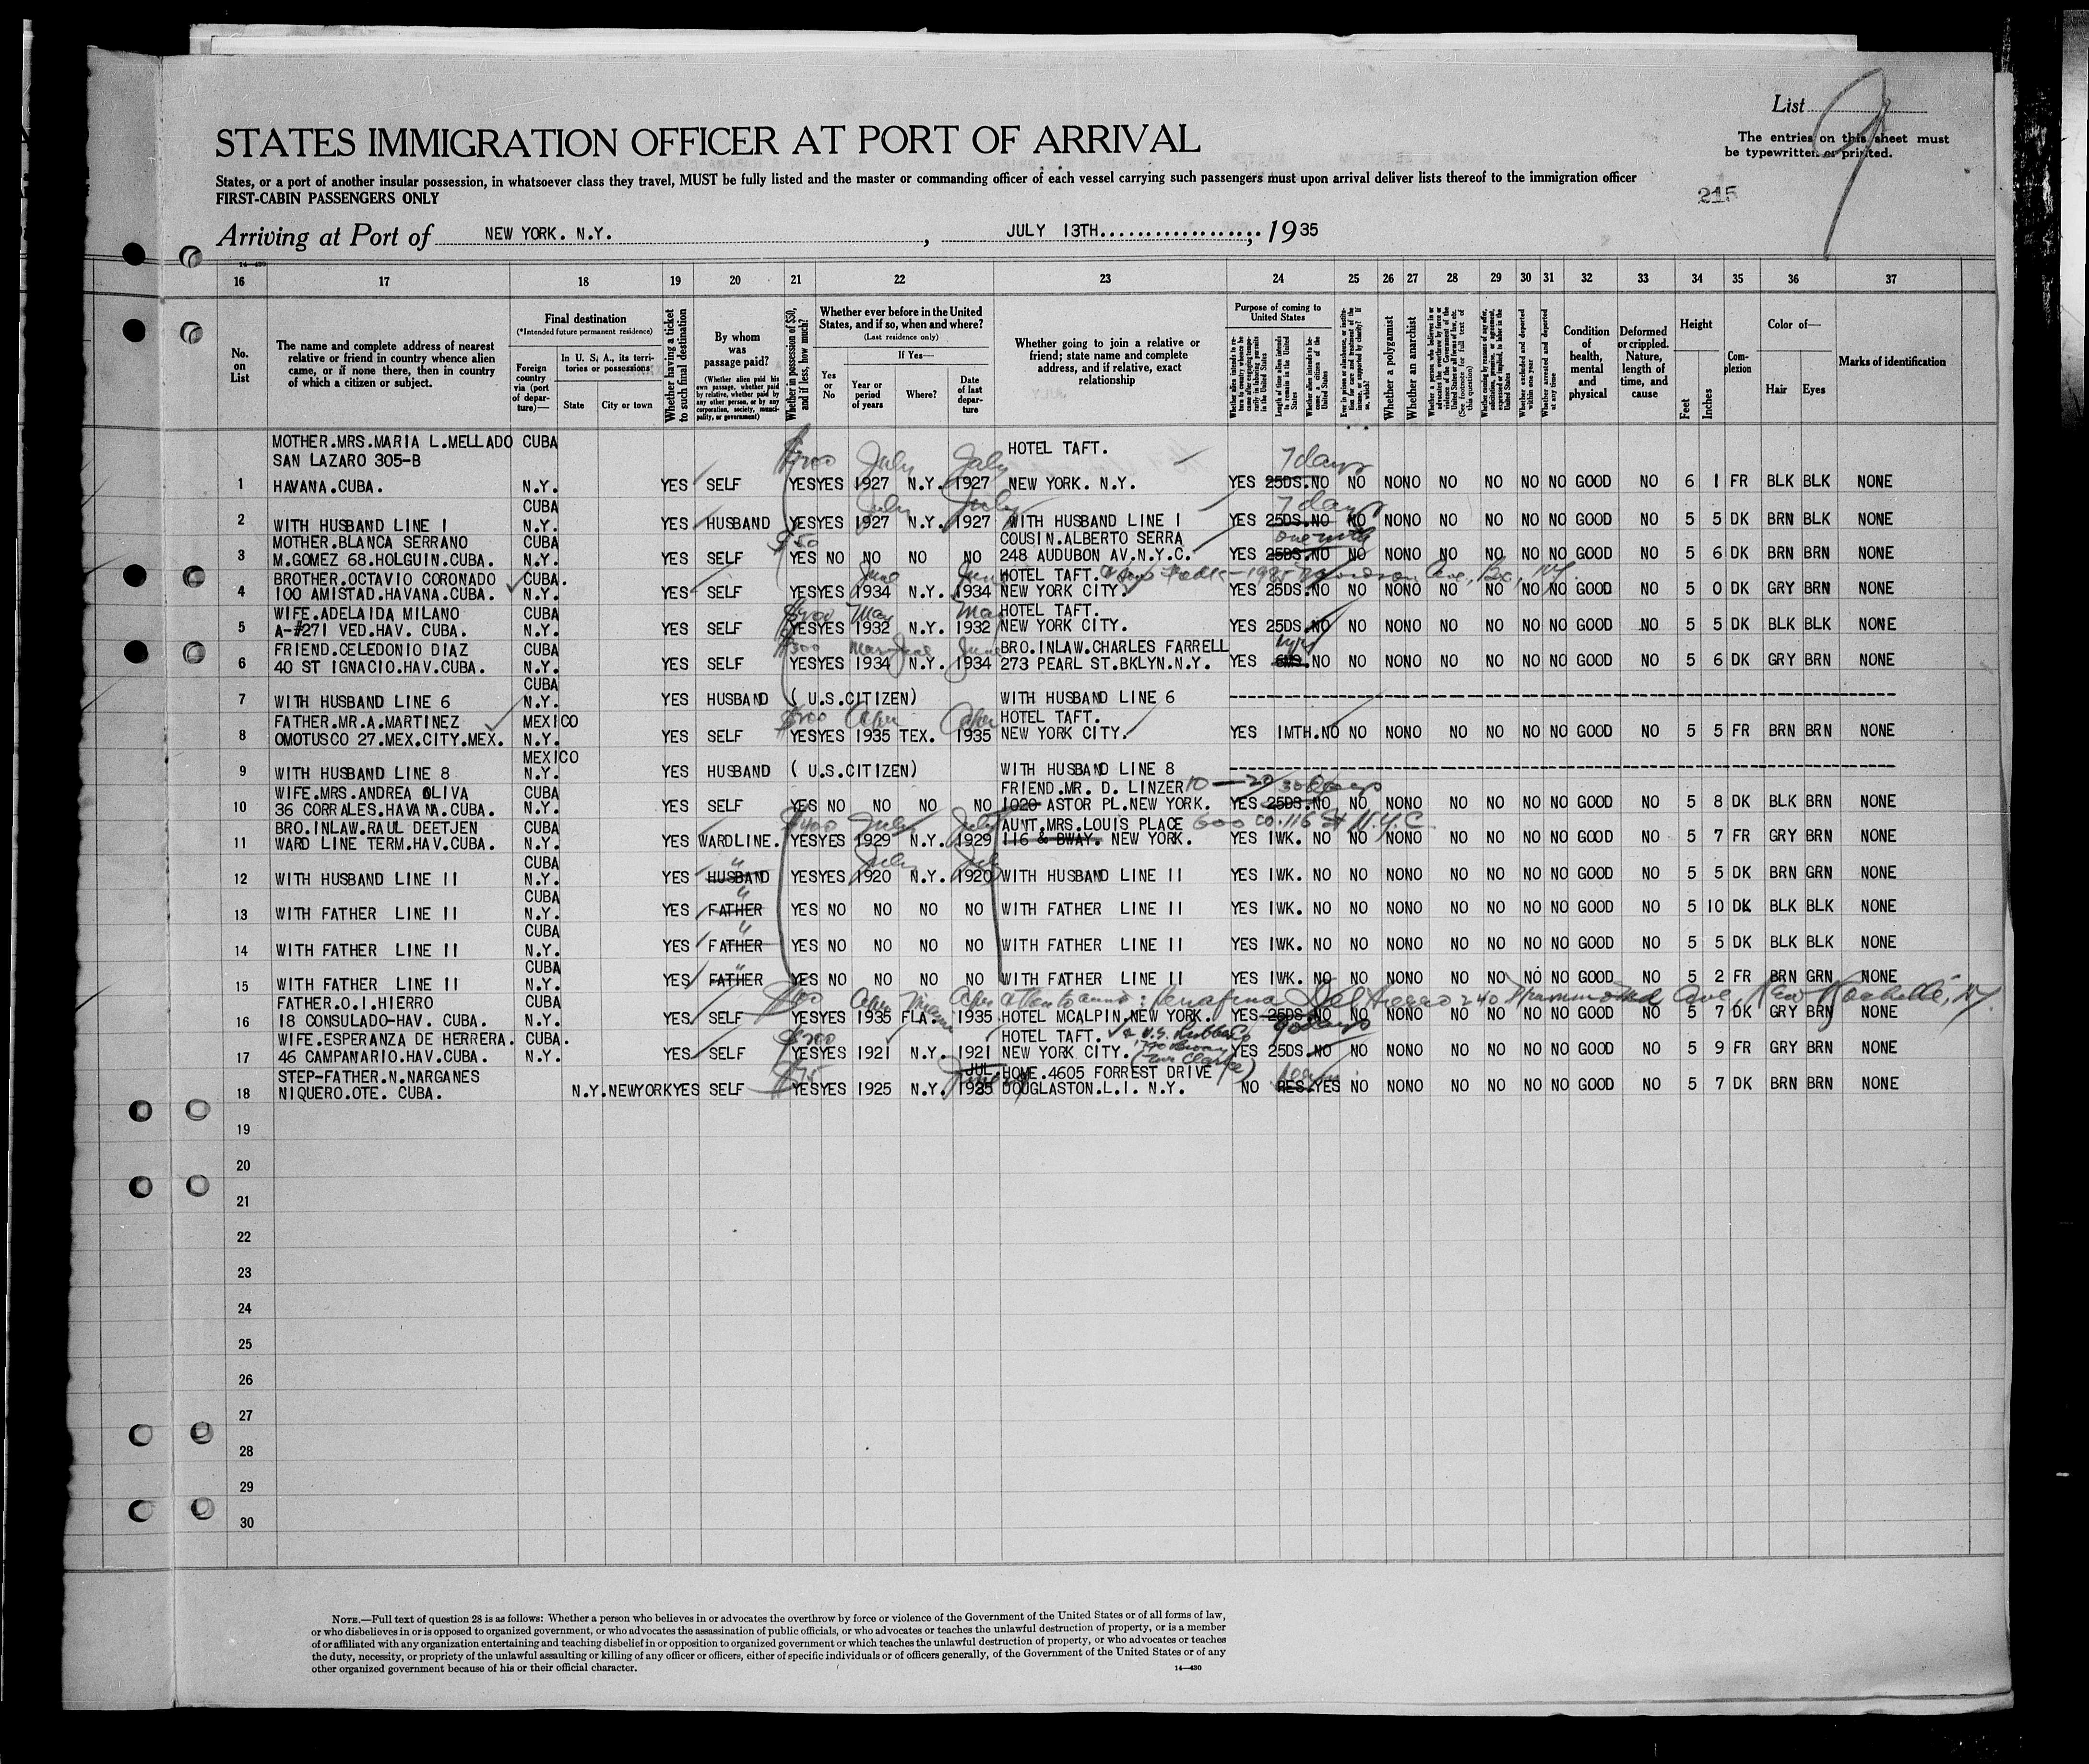 List 9
STATES IMMIGRATION OFFICER AT PORT OF ARRIVAL
The entries on this sheet must
be typewritten or printed.
States, or a port of another insular possession, in whatsoever class they travel, MUST be fully listed and the master or commanding officer of each vessel carrying such passengers must upon arrival deliver lists thereof to the immigration officer
FIRST-CABIN PASSENGERS ONLY
215
Arriving at Port of NEW YORK. N.Y. , JULY 13TH , 1935
14-430
16 17 18 19 20 21 22 23 24 25 26 27 28 29 30 31 32 33 34 35 36 37
No. on List
The name and complete address of nearest relative or friend in country whence alien came, or if none there, then in country of which a citizen or subject.
Final destination
(*Intended future permanent residence)
Foreign country via (port of departure)—
In U. S. A., its territories or possessions
State City or town
Whether having a ticket to such final destination
By whom was passage paid?
(Whether alien paid his own passage, whether paid by relative, whether paid by any other person, or by any corporation, society, municipality, or government)
Whether in possession of $50, and if less, how much?
Whether ever before in the United States, and if so, when and where?
(Last residence only)
If Yes—
Yes or No Year or period of years Where? Date of last departure
Whether going to join a relative or friend; state name and complete address, and if relative, exact relationship
Purpose of coming to United States
Length of time alien intends to remain in the United States
Whether a polygamist
Whether an anarchist
Condition of health, mental and physical
Deformed or crippled. Nature, length of time, and cause
Height
Feet Inches
Complexion
Color of—
Hair Eyes
Marks of identification
MOTHER.MRS.MARIA L.MELLADO CUBA HOTEL TAFT.
SAN LAZARO 305-B July July 7 days
1 HAVANA.CUBA. N.Y. YES SELF YES YES 1927 N.Y. 1927 NEW YORK. N.Y. YES 25DS. NO NO NO NO NO NO NO NO GOOD NO 6 1 FR BLK BLK NONE
CUBA July July 7 days
2 WITH HUSBAND LINE 1 N.Y. YES HUSBAND YES YES 1927 N.Y. 1927 WITH HUSBAND LINE 1 YES 25DS. NO NO NO NO NO NO NO NO GOOD NO 5 5 DK BRN BLK NONE
MOTHER.BLANCA SERRANO CUBA $50 COUSIN.ALBERTO SERRA
3 M.GOMEZ 68.HOLGUIN.CUBA. N.Y. YES SELF YES NO NO NO NO 248 AUDUBON AV.N.Y.C. YES 25DS. NO NO NO NO NO NO NO NO GOOD NO 5 6 DK BRN BRN NONE
BROTHER.OCTAVIO CORONADO CUBA. June June HOTEL TAFT.
4 100 AMISTAD.HAVANA.CUBA. N.Y. YES SELF YES YES 1934 N.Y. 1934 NEW YORK CITY. YES 25DS. NO NO NO NO NO NO NO NO GOOD NO 5 0 DK GRY BRN NONE
WIFE.ADELAIDA MILANO CUBA May May HOTEL TAFT.
5 A-#271 VED.HAV. CUBA. N.Y. YES SELF YES YES 1932 N.Y. 1932 NEW YORK CITY. YES 25DS. NO NO NO NO NO NO NO NO GOOD NO 5 5 DK BLK BLK NONE
FRIEND.CELEDONIO DIAZ CUBA $300 June BRO.INLAW.CHARLES FARRELL
6 40 ST IGNACIO.HAV.CUBA. N.Y. YES SELF YES YES 1934 N.Y. 1934 273 PEARL ST.BKLYN.N.Y. YES NO NO NO NO NO NO NO NO GOOD NO 5 6 DK GRY BRN NONE
CUBA
7 WITH HUSBAND LINE 6 N.Y. YES HUSBAND ( U.S.CITIZEN) WITH HUSBAND LINE 6
FATHER.MR.A.MARTINEZ MEXICO Apr Apr HOTEL TAFT.
8 OMOTUSCO 27.MEX.CITY.MEX. N.Y. YES SELF YES YES 1935 TEX. 1935 NEW YORK CITY. YES 1MTH. NO NO NO NO NO NO NO NO GOOD NO 5 5 FR BRN BRN NONE
MEXICO
9 WITH HUSBAND LINE 8 N.Y. YES HUSBAND ( U.S.CITIZEN) WITH HUSBAND LINE 8
WIFE.MRS.ANDREA OLIVA CUBA FRIEND.MR. D. LINZER 10—20 30 days
10 36 CORRALES.HAVANA.CUBA. N.Y. YES SELF YES NO NO NO NO 1020 ASTOR PL.NEW YORK. YES 25DS. NO NO NO NO NO NO NO NO GOOD NO 5 8 DK BLK BRN NONE
BRO.INLAW.RAUL DEETJEN CUBA $400 July July AUNT.MRS.LOUIS PLACE 600 W. 116 St N.Y.C.
11 WARD LINE TERM.HAV.CUBA. N.Y. YES WARDLINE. YES YES 1929 N.Y. 1929 116 & BWAY. NEW YORK. YES 1WK. NO NO NO NO NO NO NO NO GOOD NO 5 7 FR GRY BRN NONE
CUBA " July July
12 WITH HUSBAND LINE 11 N.Y. YES HUSBAND YES YES 1920 N.Y. 1920 WITH HUSBAND LINE 11 YES 1WK. NO NO NO NO NO NO NO NO GOOD NO 5 5 DK BRN GRN NONE
CUBA "
13 WITH FATHER LINE 11 N.Y. YES FATHER YES NO NO NO NO WITH FATHER LINE 11 YES 1WK. NO NO NO NO NO NO NO NO GOOD NO 5 10 DK BLK BLK NONE
CUBA "
14 WITH FATHER LINE 11 N.Y. YES FATHER YES NO NO NO NO WITH FATHER LINE 11 YES 1WK. NO NO NO NO NO NO NO NO GOOD NO 5 5 DK BLK BLK NONE
CUBA "
15 WITH FATHER LINE 11 N.Y. YES FATHER YES NO NO NO NO WITH FATHER LINE 11 YES 1WK. NO NO NO NO NO NO NO NO GOOD NO 5 2 FR BRN GRN NONE
FATHER.O.I.HIERRO CUBA Apr Miami Apr Serafina Del 240 Drummond Ave, New Rochelle, NY
16 18 CONSULADO-HAV. CUBA. N.Y. YES SELF YES YES 1935 FLA. 1935 HOTEL MCALPIN.NEW YORK. YES 25DS. NO NO NO NO NO NO NO NO GOOD NO 5 7 DK GRY BRN NONE
WIFE.ESPERANZA DE HERRERA. CUBA. $200 HOTEL TAFT. U.S. Rubber Co 90 days
17 46 CAMPANARIO.HAV.CUBA. N.Y. YES SELF YES YES 1921 N.Y. 1921 NEW YORK CITY. YES 25DS. NO NO NO NO NO NO NO NO GOOD NO 5 9 FR GRY BRN NONE
STEP-FATHER.N.NARGANES $75 JUL. HOME.4605 FORREST DRIVE
18 NIQUERO.OTE. CUBA. N.Y. NEWYORK YES SELF YES YES 1925 N.Y. 1935 DOUGLASTON.L.I. N.Y. NO RES. YES NO NO NO NO NO NO NO GOOD NO 5 7 DK BRN BRN NONE
19
20
21
22
23
24
25
26
27
28
29
30
NOTE.—Full text of question 28 is as follows: Whether a person who believes in or advocates the overthrow by force or violence of the Government of the United States or of all forms of law,
or who disbelieves in or is opposed to organized government, or who advocates the assassination of public officials, or who advocates or teaches the unlawful destruction of property, or is a member
of or affiliated with any organization entertaining and teaching disbelief in or opposition to organized government or which teaches the unlawful destruction of property, or who advocates or teaches
the duty, necessity, or propriety of the unlawful assaulting or killing of any officer or officers, either of specific individuals or of officers generally, of the Government of the United States or of any
other organized government because of his or their official character.
14—430